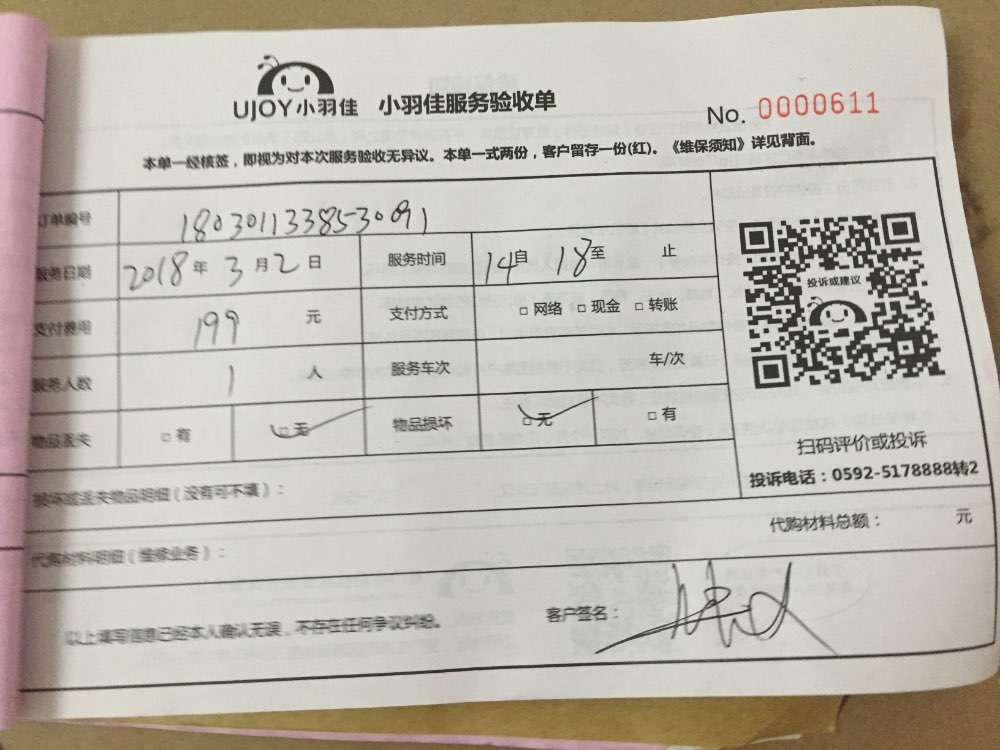 UJOY小羽佳 小羽佳服务验收单
No. 0000611
本单一经核签，即视为对本次服务验收无异议。本单一式两份，客户留存一份(红)。《维保须知》详见背面。
订单编号 18030113385530091
服务日期 2018年3月2日 服务时间 14自18至 止
支付费用 199 元 支付方式 □网络 □现金 □转账
服务人数 1 人 服务车次 车/次
物品丢失 □有 □无 物品损坏 □无 □有
投诉或建议
扫码评价或投诉
投诉电话：0592-5178888转2
损坏或丢失物品明细（没有可不填）：
代购材料明细（维修业务）： 代购材料总额： 元
以上填写信息已经本人确认无误，不存在任何争议纠纷。 客户签名：